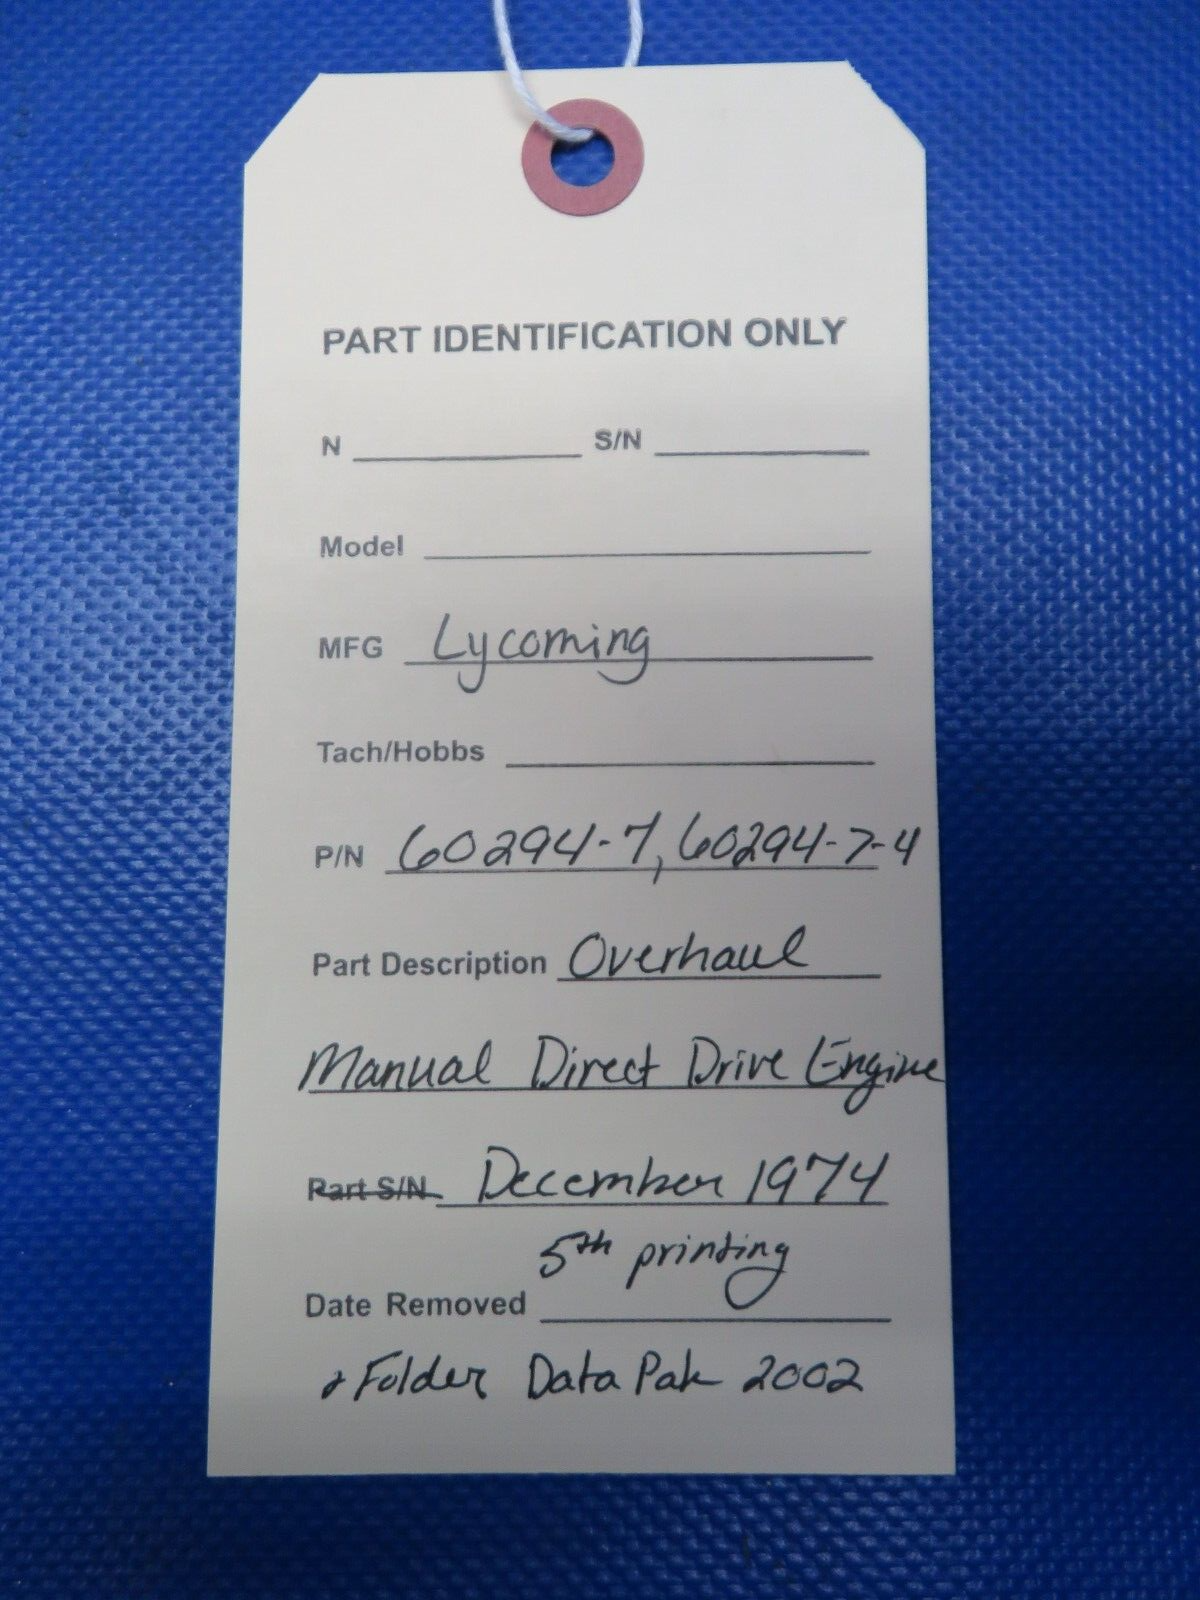 PART IDENTIFICATION ONLY
N S/N
Model
MFG Lycoming
Tach/Hobbs
P/N 60294-7, 60294-7-4
Part Description Overhaul
Manual Direct Drive Engine
Part S/N December 1974
5th printing
Date Removed
& Folder Data Pak 2002